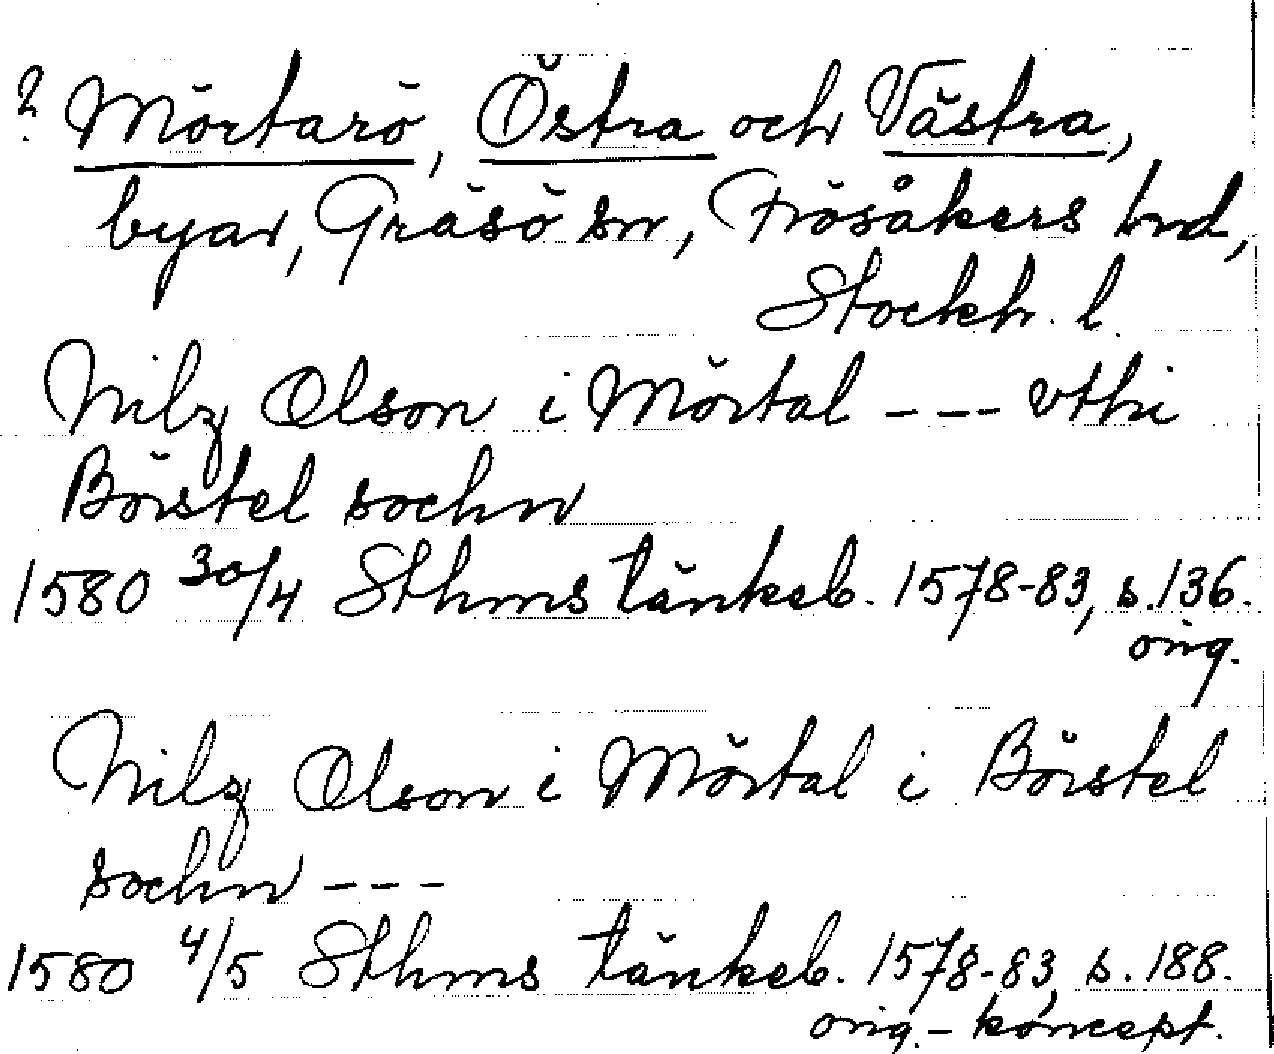 ? Mörtarö, Östra och Västra,
byar, Gräsö sn, Frösåkers hrd,
Stockh. l.
Nilz Olson i Mörtal --- vthi
Börstel sochn
1580 30/4 Sthms tänkeb. 1578-83, s. 136.
orig.
Nilz Olson i Mörtal i Börstel
sochn ---
1580 4/5 Sthms tänkeb. 1578-83, s. 188.
orig.-koncept.